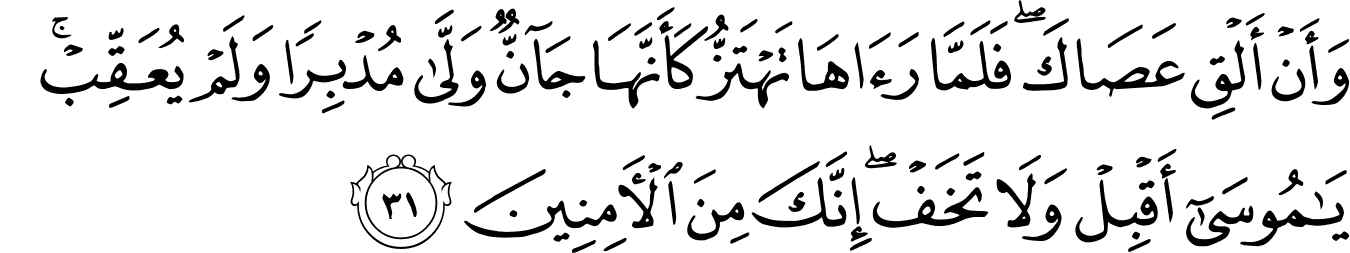 وَأَنْ أَلْقِ عَصَاكَ ۖ فَلَمَّا رَءَاهَا تَهْتَزُّ كَأَنَّهَا جَآنٌّ وَلَّىٰ مُدْبِرًا وَلَمْ يُعَقِّبْ ۚ
يَـٰمُوسَىٰٓ أَقْبِلْ وَلَا تَخَفْ ۖ إِنَّكَ مِنَ ٱلْـَٔامِنِينَ ٣١